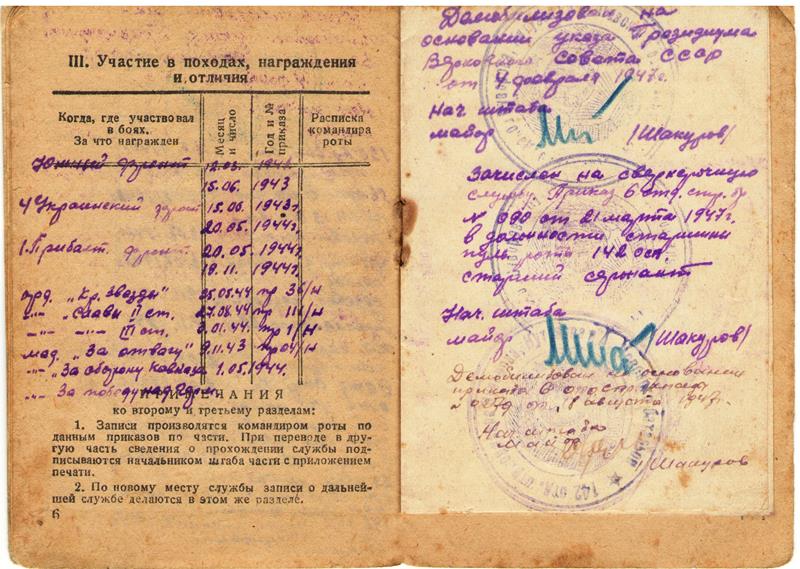 III. Участие в походах, награждения
и отличия
Когда, где участвовал
в боях.
За что награжден
Месяц
и число
Год и №
приказа
Расписка
командира
роты
Южный фронт 12.03. 194
15.06. 1943
4 Украинский фронт 15.06. 1943г.
20.05. 1944г.
1. Прибалт. фронт. 20.05. 1944г.
19.11. 1944г.
орд. „Кр. Звезды" 25.05.44 пр 36/н
-"- „Славы II ст. 27.08.44 пр /н
-"- III ст. 3.01.44. пр 1/н
мед. „За отвагу" 9.11.43 пр 04/н
-"- „За оборону Кавказа 1.05.1944.
-"- За победу над Герм.
ПРИМЕЧАНИЯ
ко второму и третьему разделам:
1. Записи производятся командиром роты по
данным приказов по части. При переводе в дру-
гую часть сведения о прохождении службы под-
писываются начальником штаба части с приложением
печати.
2. По новому месту службы записи о дальней-
шей службе делаются в этом же разделе.
6
Демобилизован на
основании указа Президиума
Верховного Совета СССР
от 4 февраля 1947г.
Нач штаба
майор /Шакуров/
Зачислен на сверхсрочную
службу. Приказ 6 отд. стр.
№ 090 от 21 марта 1947г.
в должности старшины
пуль. рота 142
старший сержант
Нач. штаба
майор /Шакуров/
Демобилизован на основании
приказа 6
0270 от 18 августа 1947г.
Нач штаба
Майор
Шакуров
142 ОТД.